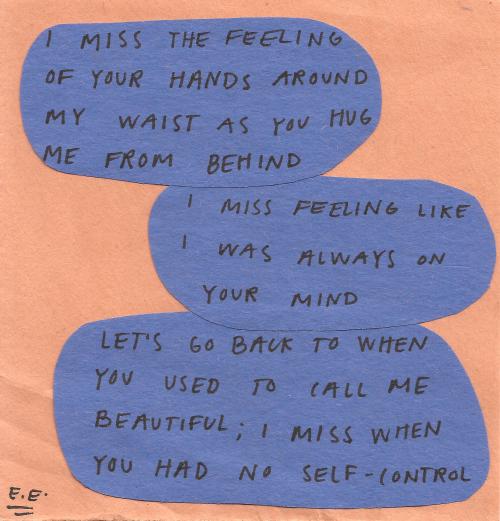 I MISS THE FEELING
OF YOUR HANDS AROUND
MY WAIST AS YOU HUG
ME FROM BEHIND
I MISS FEELING LIKE
I WAS ALWAYS ON
YOUR MIND
LET'S GO BACK TO WHEN
YOU USED TO CALL ME
BEAUTIFUL; I MISS WHEN
YOU HAD NO SELF-CONTROL
E.E.